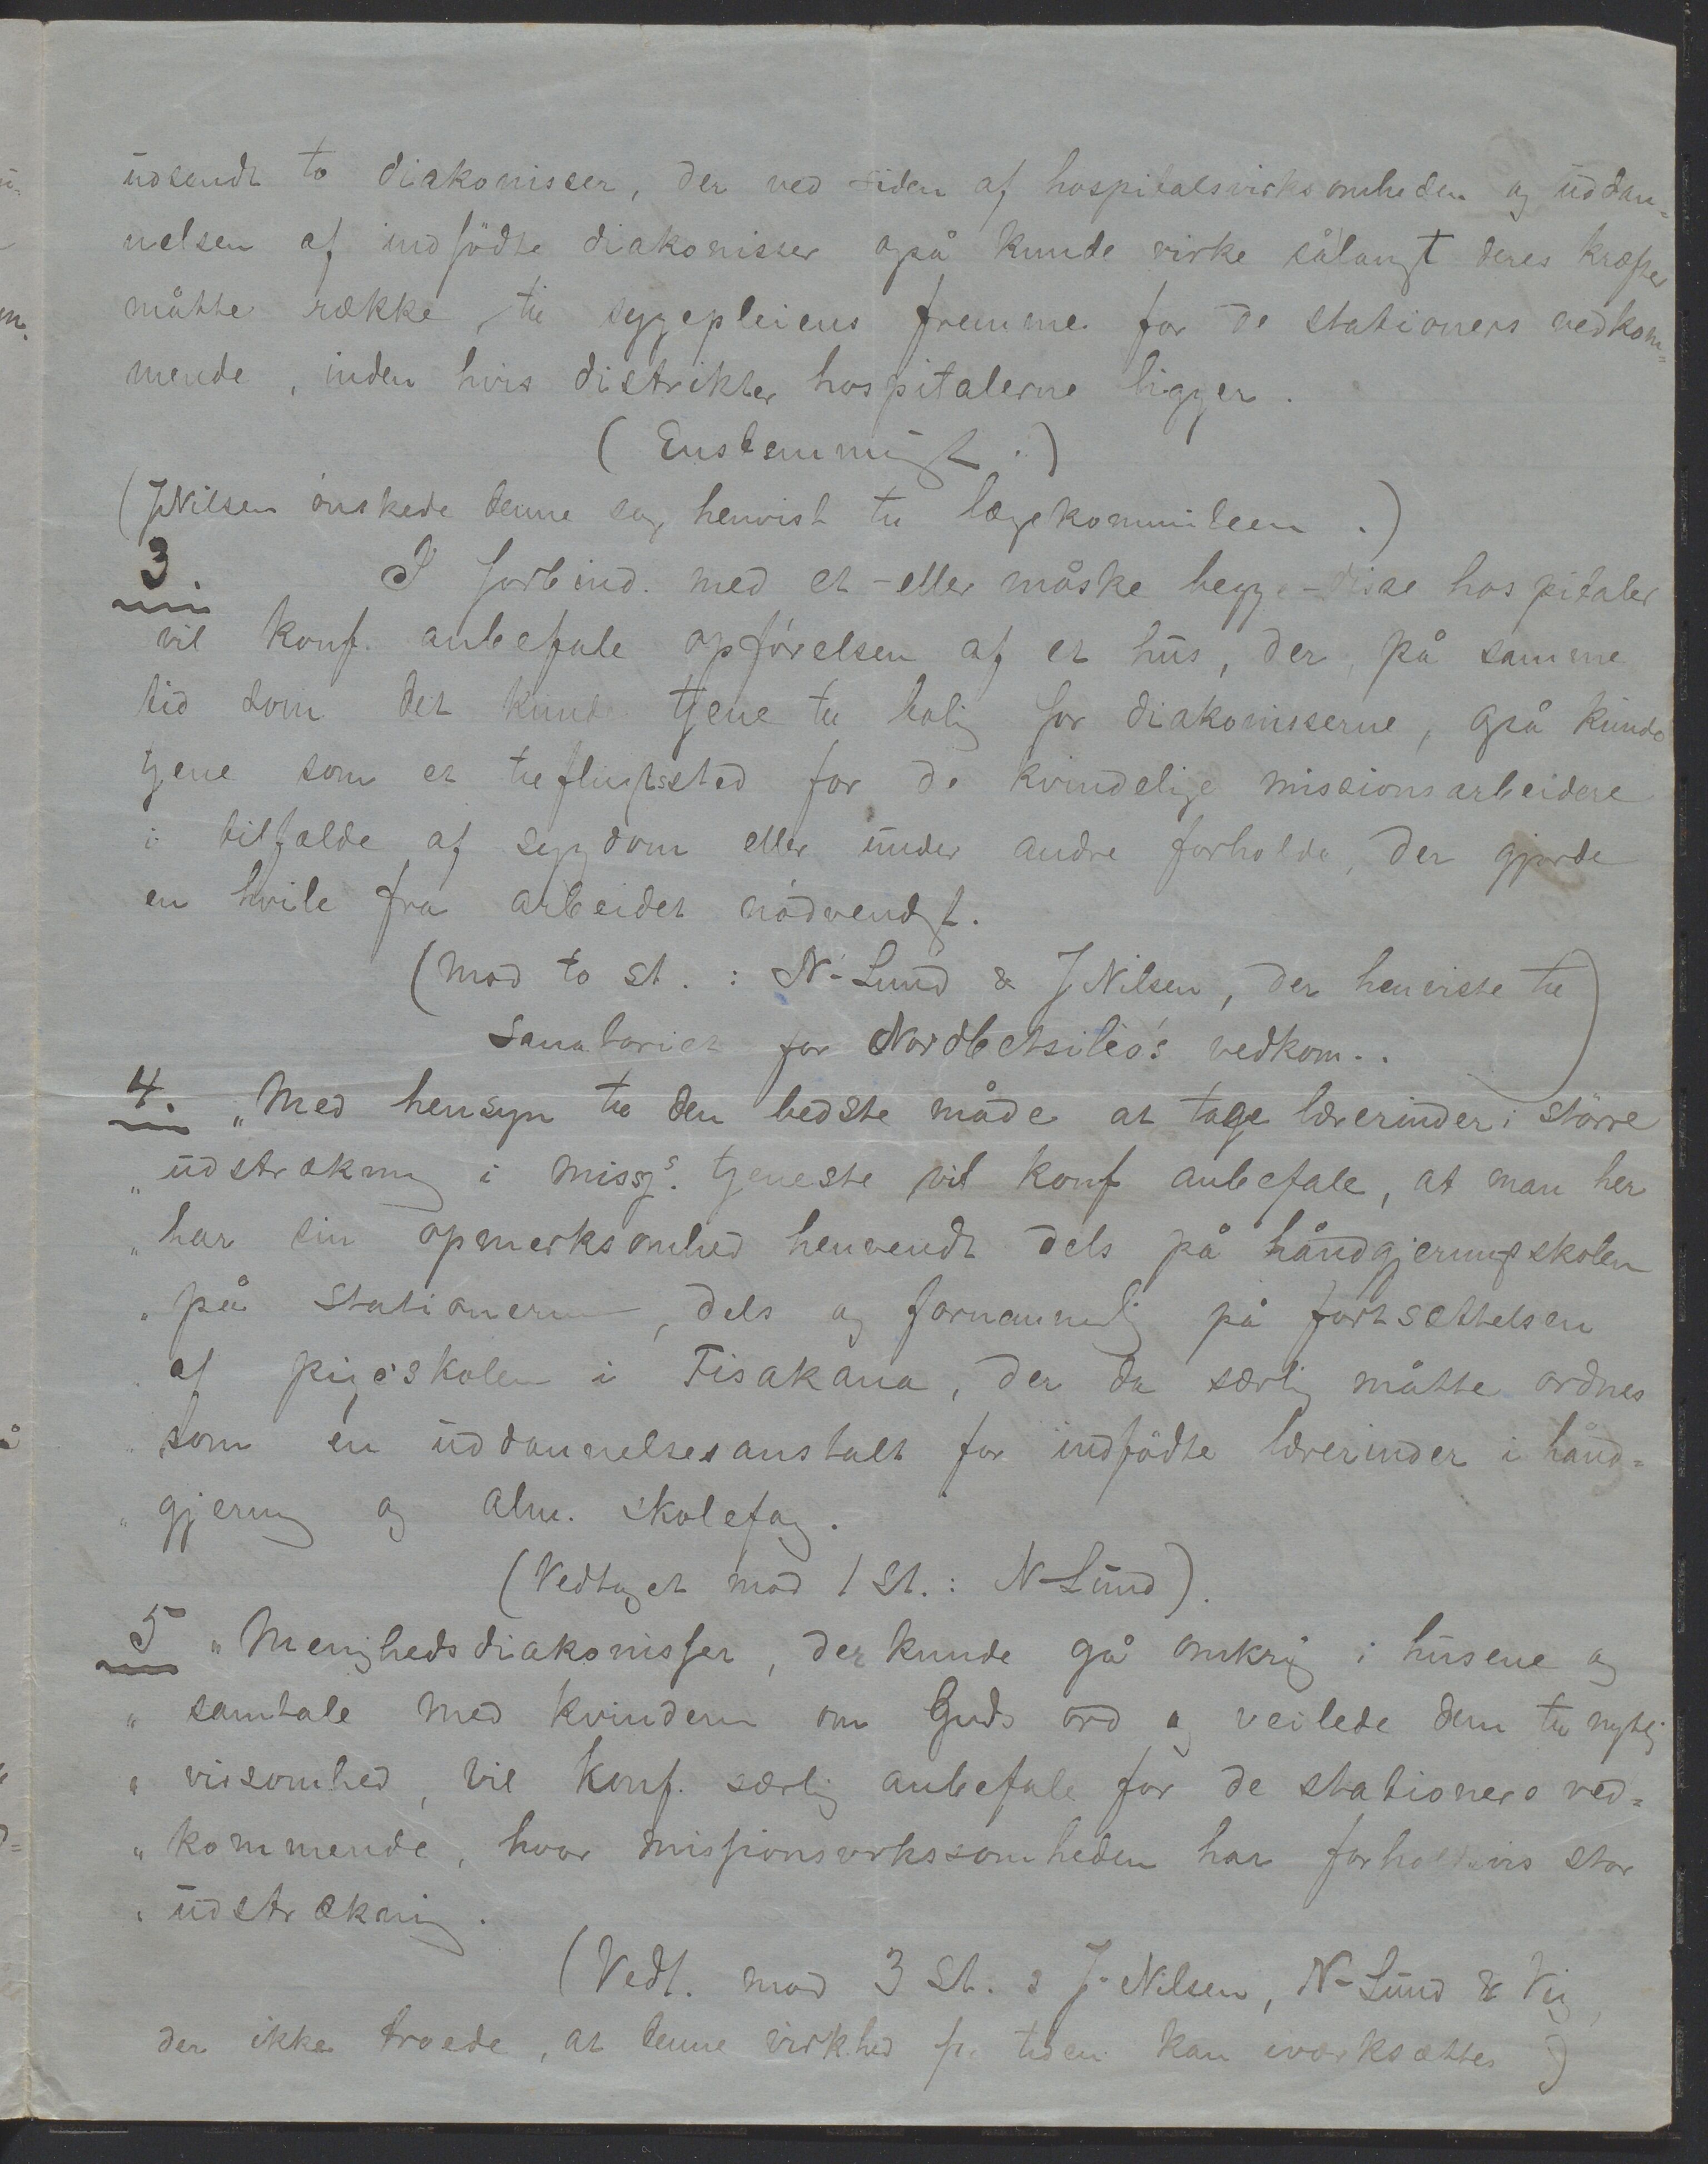 udsendt to diakonisser, der ved siden af hospitalsvirksomheden og uddan=
nelsen af indfödte diakonisser også kunde virke sålangt deres kræfter
måtte række, til sygepleiens fremme for de stationers vedkom=
mende, inden hvis distrikter hospitalerne ligger.
(Enstemmigt.)
(JNilsen önskede denne sag henvist til lægekommiteen.)
3. I forbind. med et - eller måske begge - disse hospitaler
vil konf. anbefale opförelsen af et hus, der, på samme
tid som det kunde tjene til bolig for diakonisserne, også kunde
tjene som et tilflugtssted for de kvindelige missionsarbeidere
i tilfælde af sygdom eller under andre forholde, der gjorde
en hvile fra arbeidet nödvendigt.
(mod to st.: N-Lund & J Nilsen, der henviste til
Sanatoriet for Nordbetsileo's vedkom..)
4. "Med hensyn til den bedste måde at tage lærerinder i större
"udstrækning i missj.s tjeneste vil konf anbefale, at man her
"har sin opmerksomhed henvendt dels på håndgjerningsskolen
"på stationerne, dels og fornemmelig på fortsættelsen
"af pigeskolen i Fisakana, der da særlig måtte ordnes
"som en uddannelsesanstalt for indfödte lærerinder i hånd=
"gjerning og alm. skolefag.
(Vedtaget mod 1 St.: N-Lund).
5 "Menighedsdiakonisser, der kunde gå omkring i husene og
"samtale med kvinderne om Guds ord og veilede dem til nyttig
"virsomhed, vil konf. særlig anbefale for de stationers ved=
"kommende, hvor missionsvirkssomheden har forholdsvis stor
"udstrækning.
(Vedt. mod 3 St. : J. Nilsen, N-Lund & Vig,
der ikke troede, at denne virk.hed for tiden kan iværksættes)